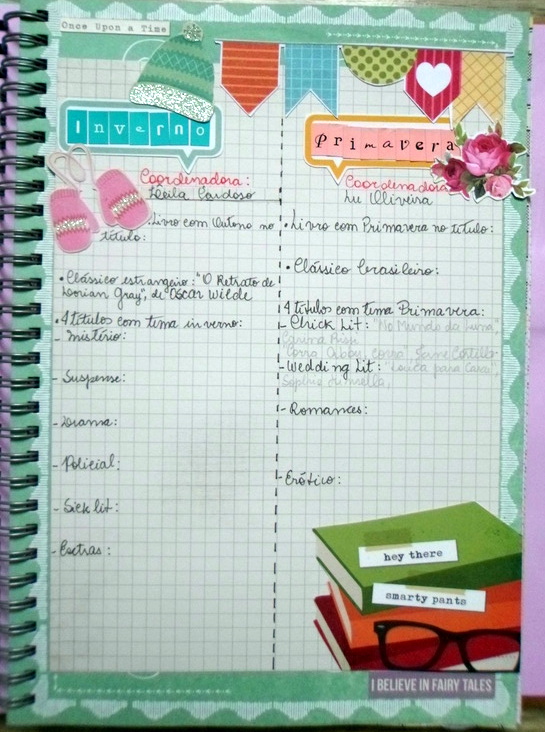 Once Upon a Time
Inverno
Coordenadora:
Leila Cardoso
·Livro com Outono no
título:
·Clássico estrangeiro: "O Retrato de
Dorian Gray", de Oscar Wilde
·4 títulos com tema inverno:
- Mistério:
- Suspense:
- Drama:
- Policial:
- Sick lit:
- Extras:
Primavera
Coordenadora
Lu Oliveira
·Livro com Primavera no título:
·Clássico brasileiro:
4 títulos com tema Primavera:
- Chick Lit: "No Mundo da Luna",
Carina Rissi
Corra, Abby, corra, Jane Costello
- Wedding Lit: "Louca para Casar",
Sophie Kinsella,
- Romances:
Erótico:
hey there
smarty pants
I BELIEVE IN FAIRY TALES